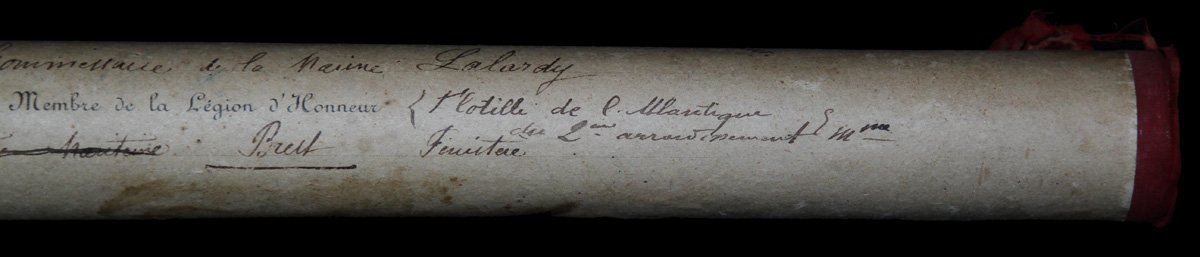 Commissaire de la Marine Lalardy
Membre de la Légion d'Honneur { Flotille de l'Atlantique
du 2eme arrondissement } mme
Maritime Brest Finistere